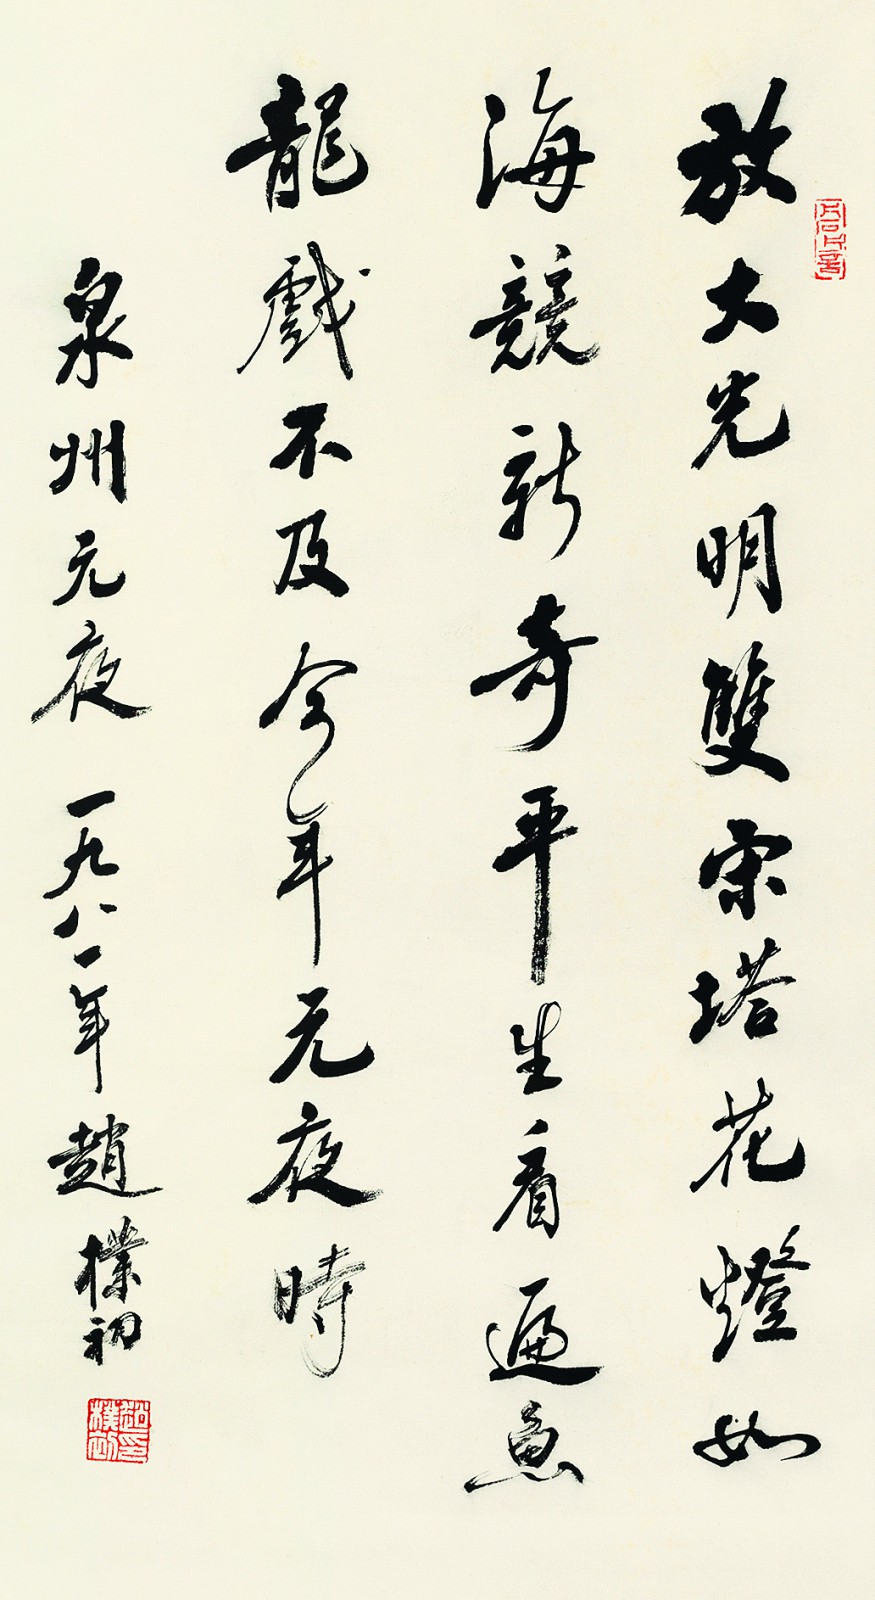 放大光明雙宋塔花燈如
海競新奇平生看遍魚
龍戲不及今年元夜時
泉州元夜 一九八一年 趙樸初
趙樸初印